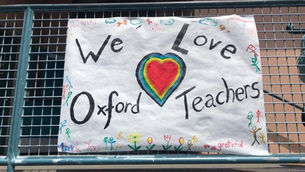 We Love
Oxford Teachers
grateful